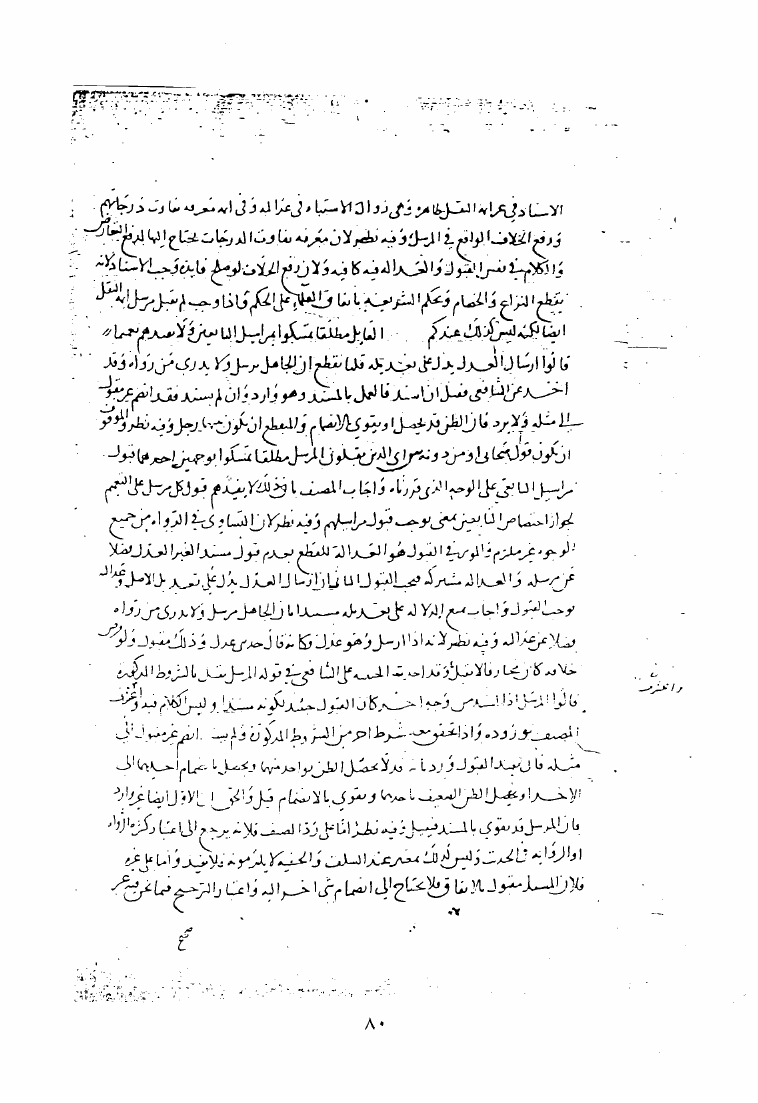 الاسناد في غرابة النقل ظاهرة وهي زوال الاشتباه في عدالته وفي انه معرفة تفاوت درجاتهم
ورفع الخلاف الواقع في المرسل وفيه نظر لان معرفة تفاوت الدرجات يحتاج اليها لدفع التعارض
والكلام في نفس القبول والعدالة فيه كافية ولان رفع الخلاف لو صلح فايدة وجب الاسناد لانه
يقطع النزاع والخصام ويحكم الشريعة باتفاق العلماء على الحكم واذا وجب لم يقبل مرسل ايمة النقل
ايضا لكنه ليس كذلك عندكم القايل مطلقا تمسكوا بمراسيل التابعين ولا يفيدهم تعميما
قالوا ارسال العدل يدل على تعديله قلنا نقطع ان الجاهل يرسل ولا يدري من رواه وقد
اخذ عن الشافعي فقيل ان اسند فالعمل بالمسند وهو وارد وان لم يسند فقد انضم غير مقبول
الى مثله ولا يرد فان الظن قد يحصل او يتقوى بالانضمام والمنقطع ان يكون بينهما رجل وفيه نظر والموقوف
ان يكون قول صحابي او من دونه اي الذين يقبلون المرسل مطلقا تمسكوا بوجهين احدهما قبول
مراسيل التابعين على الوجه الذي قررناه واجاب المصنف بان ذلك لا يفيدهم قبول كل مرسل على التعميم
لجواز اختصاص التابعين بمعنى يوجب قبول مراسيلهم وفيه نظر لان التساوي في الرواة من جميع
الوجوه غير ملتزم والموثر في القبول هو العدالة للقطع بعدم قبول مسند الغير العدل فضلا
عن مرسله والعدالة مشتركة فيجب القبول الثاني ان ارسال العدل يدل على تعديل الاصل وعدالته
يوجب القبول واجاب بمنع الدلالة على تعديله مستندا بان الجاهل يرسل ولا يدري من رواه
فضلا عن عدالته وفيه نظر لانه اذا ارسل وهو عدل وكانه قال حدثني عدل وذلك مقبول ولو فرض
خلافه كان وقد اخذ عن الشافعي في قوله المرسل يقبل بالشروط المذكورة
قالوا المرسل اذا اسند من وجه اخر كان القبول حينئذ لكونه مسندا وليس الكلام فيه واعترف
المصنف بوروده واذا تحقق معه شرط اخر من الشروط المذكورة ولم يسند انضم غير مقبول الى
مثله فلا يفيد القبول ورد بانه قد لا يحصل الظن بواحد منهما ويحصل بانضمام احدهما الى
الاخر او يحصل الظن الضعيف باحدهما ويتقوى بالانضمام قيل والحق ان الاول ايضا غير وارد
فان المرسل قد يقوى بالمسند فيقبل وفيه نظر اما على فلانه يرجع الى اعتبار كثرة الرواة
او الرواية في الحديث وليس ذلك معتبر عند السلف والحنفية لا يلتزمونه فلا يفيد واما على غيره
فلان المسند مقبول بالاتفاق فلا يحتاج الى انضمام شي اخر اليه واعتبار الترجيح فيما نحن فيه غير
واعترف
صح
٨٠